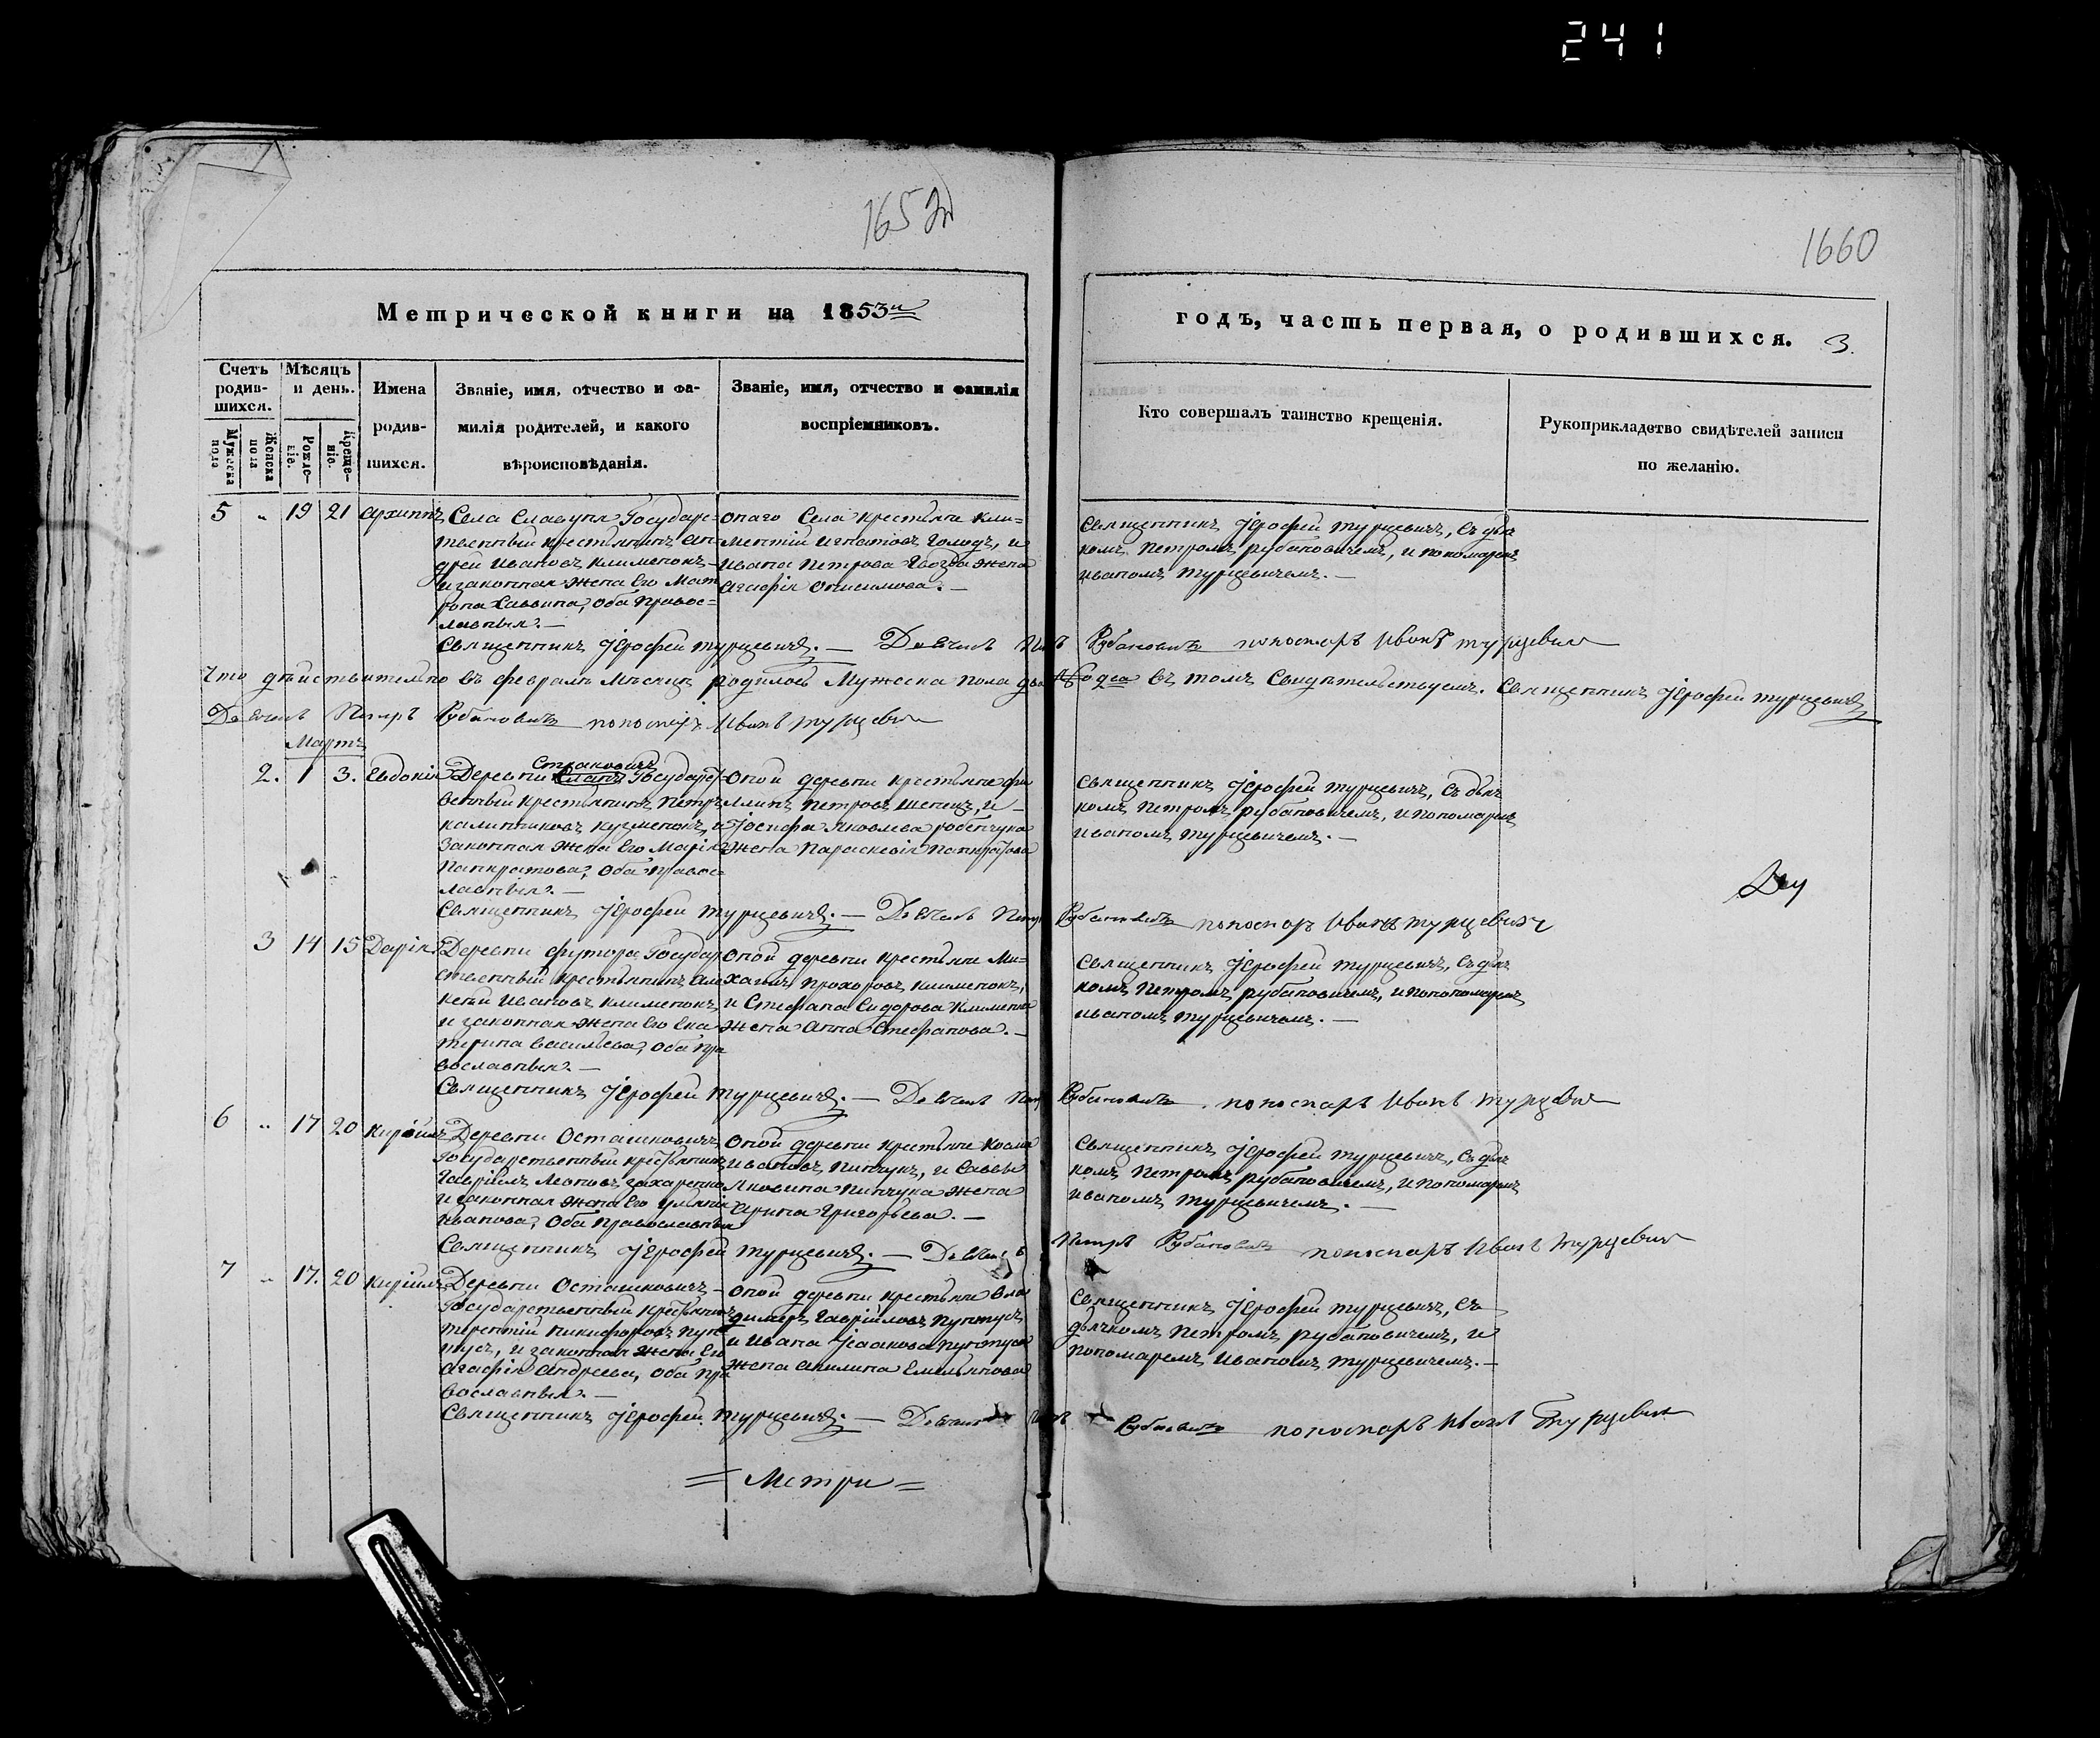 241
165
1660
Метрической книги на 1853й
годъ, часть первая, о родившихся. 3.
Счетъ родив-шихся.
Мужеска пола
Женска пола
Мѣсяцъ и день.
Рожде-ніе.
Креще-ніе.
Имена
родив-
шихся.
Званіе, имя, отчество и фа-
милія родителей, и какого
вѣроисповѣданія.
Званіе, имя, отчество и фамилія
воспріемниковъ.
Кто совершалъ таинство крещенія.
Рукоприкладство свидѣтелей записи
по желанію.
5 „ 19 21 Архиппъ
Села Государс-
твенный крестьянинъ Ан-
дрей Ивановъ Клименокъ
и законная жена Его Мат
рона Саввина, оба правос-
лавныя. —
онаго Села крестьяне Кли-
ментій Игнатовъ Голодъ, и
Ивана Петрова Гвозда жена
Агафія Онисимова. —
Священникъ Іерофей Турцевичъ, съ дья
комъ Петромъ Рубановичемъ, и пономаремъ
Иваномъ Турцевичемъ. —
Священникъ Іерофей Турцевичъ. — Дьячекъ Петръ Рубановичъ пономарь Иванъ Турцевич
Что дѣйствительно въ февралѣ мѣсяцѣ родилось Мужеска пола два въ томъ Свидѣтельствуемъ. Священникъ Іерофей Турцевичъ
Дьячекъ Петръ Рубановичъ пономарь Иванъ Турцевич
Мартъ
2. 1 3. Евдокія
Стракович
Деревни Государст
венный крестьянинъ Петръ
Калинниковъ Кузменокъ, и
законная жена Его Марія
Панкратова, оба правос
лавныя. —
оной деревни крестьяне Фи
липъ Петровъ Шепецъ, и
Іосифа Яковлева
жена Параскевія Панкратова
Священникъ Іерофей Турцевичъ, съ дьяч
комъ Петромъ Рубановичемъ, и пономаремъ
Иваномъ Турцевичемъ. —
Священникъ Іерофей Турцевичъ. — Дьячекъ Петръ Рубановичъ пономарь Иванъ Турцевичъ
3 14 15 Дарія
Деревни Футора Государ
ственный крестьянинъ Але
ксѣй Ивановъ Клименокъ
и законная жена Его Ека
терина Васильева, оба пра
вославныя. —
оной деревни крестьяне Ми-
хаилъ Прохоровъ Клименокъ,
и Стефана Сидорова Клименка
жена Анна Стефанова. —
Священникъ Іерофей Турцевичъ, съ дьяч
комъ Петромъ Рубановичемъ, и понономаремъ
Иваномъ Турцевичемъ. —
Священникъ Іерофей Турцевичъ. — Дьячекъ Петръ Рубановичъ. пономарь Иванъ Турцевич
6 „ 17 20 Кириллъ
Деревни Осташковичъ
Государственный крестьянинъ
Гавріилъ Леоновъ Захаренко
и законная жена Его Уліянія
Иванова, оба православныя
оной деревни крестьяне Косма
Ивановъ Пинчукъ, и Саввы
Яковина Пинчука жена
Арина Григорьева. —
Священникъ Іерофей Турцевичъ, съ дьяч
комъ Петромъ Рубановичемъ, и пономаремъ
Иваномъ Турцевичемъ. —
Священникъ Іерофей Турцевичъ. — Дьячекъ Петръ Рубановичъ пономарь Иванъ Турцевич
7 „ 17. 20 Кириллъ
Деревни Осташковичъ —
Государственный крестьянинъ
Терентій Никифоровъ Пун
тусъ, и законная жена Его
Агафія Андреева, оба пра
вославныя. —
оной деревни крестьяне Вла
димеръ Гавріиловъ Пунтусъ
и Ивана Ісаакова Пунтуса
жена Акилина Емельянова
Священникъ Іерофей Турцевичъ, съ
дьячкомъ Петромъ Рубановичемъ, и
пономаремъ Иваномъ Турцевичемъ. —
Священникъ Іерофей Турцевичъ. — Дьячекъ Петръ Рубановичъ пономарь Иванъ Турцевич
= Метри =